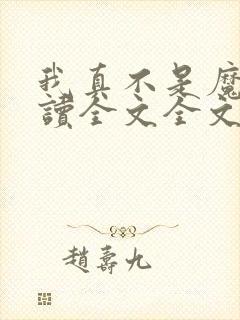 我真不是魔
讀全文全文
趙壽九